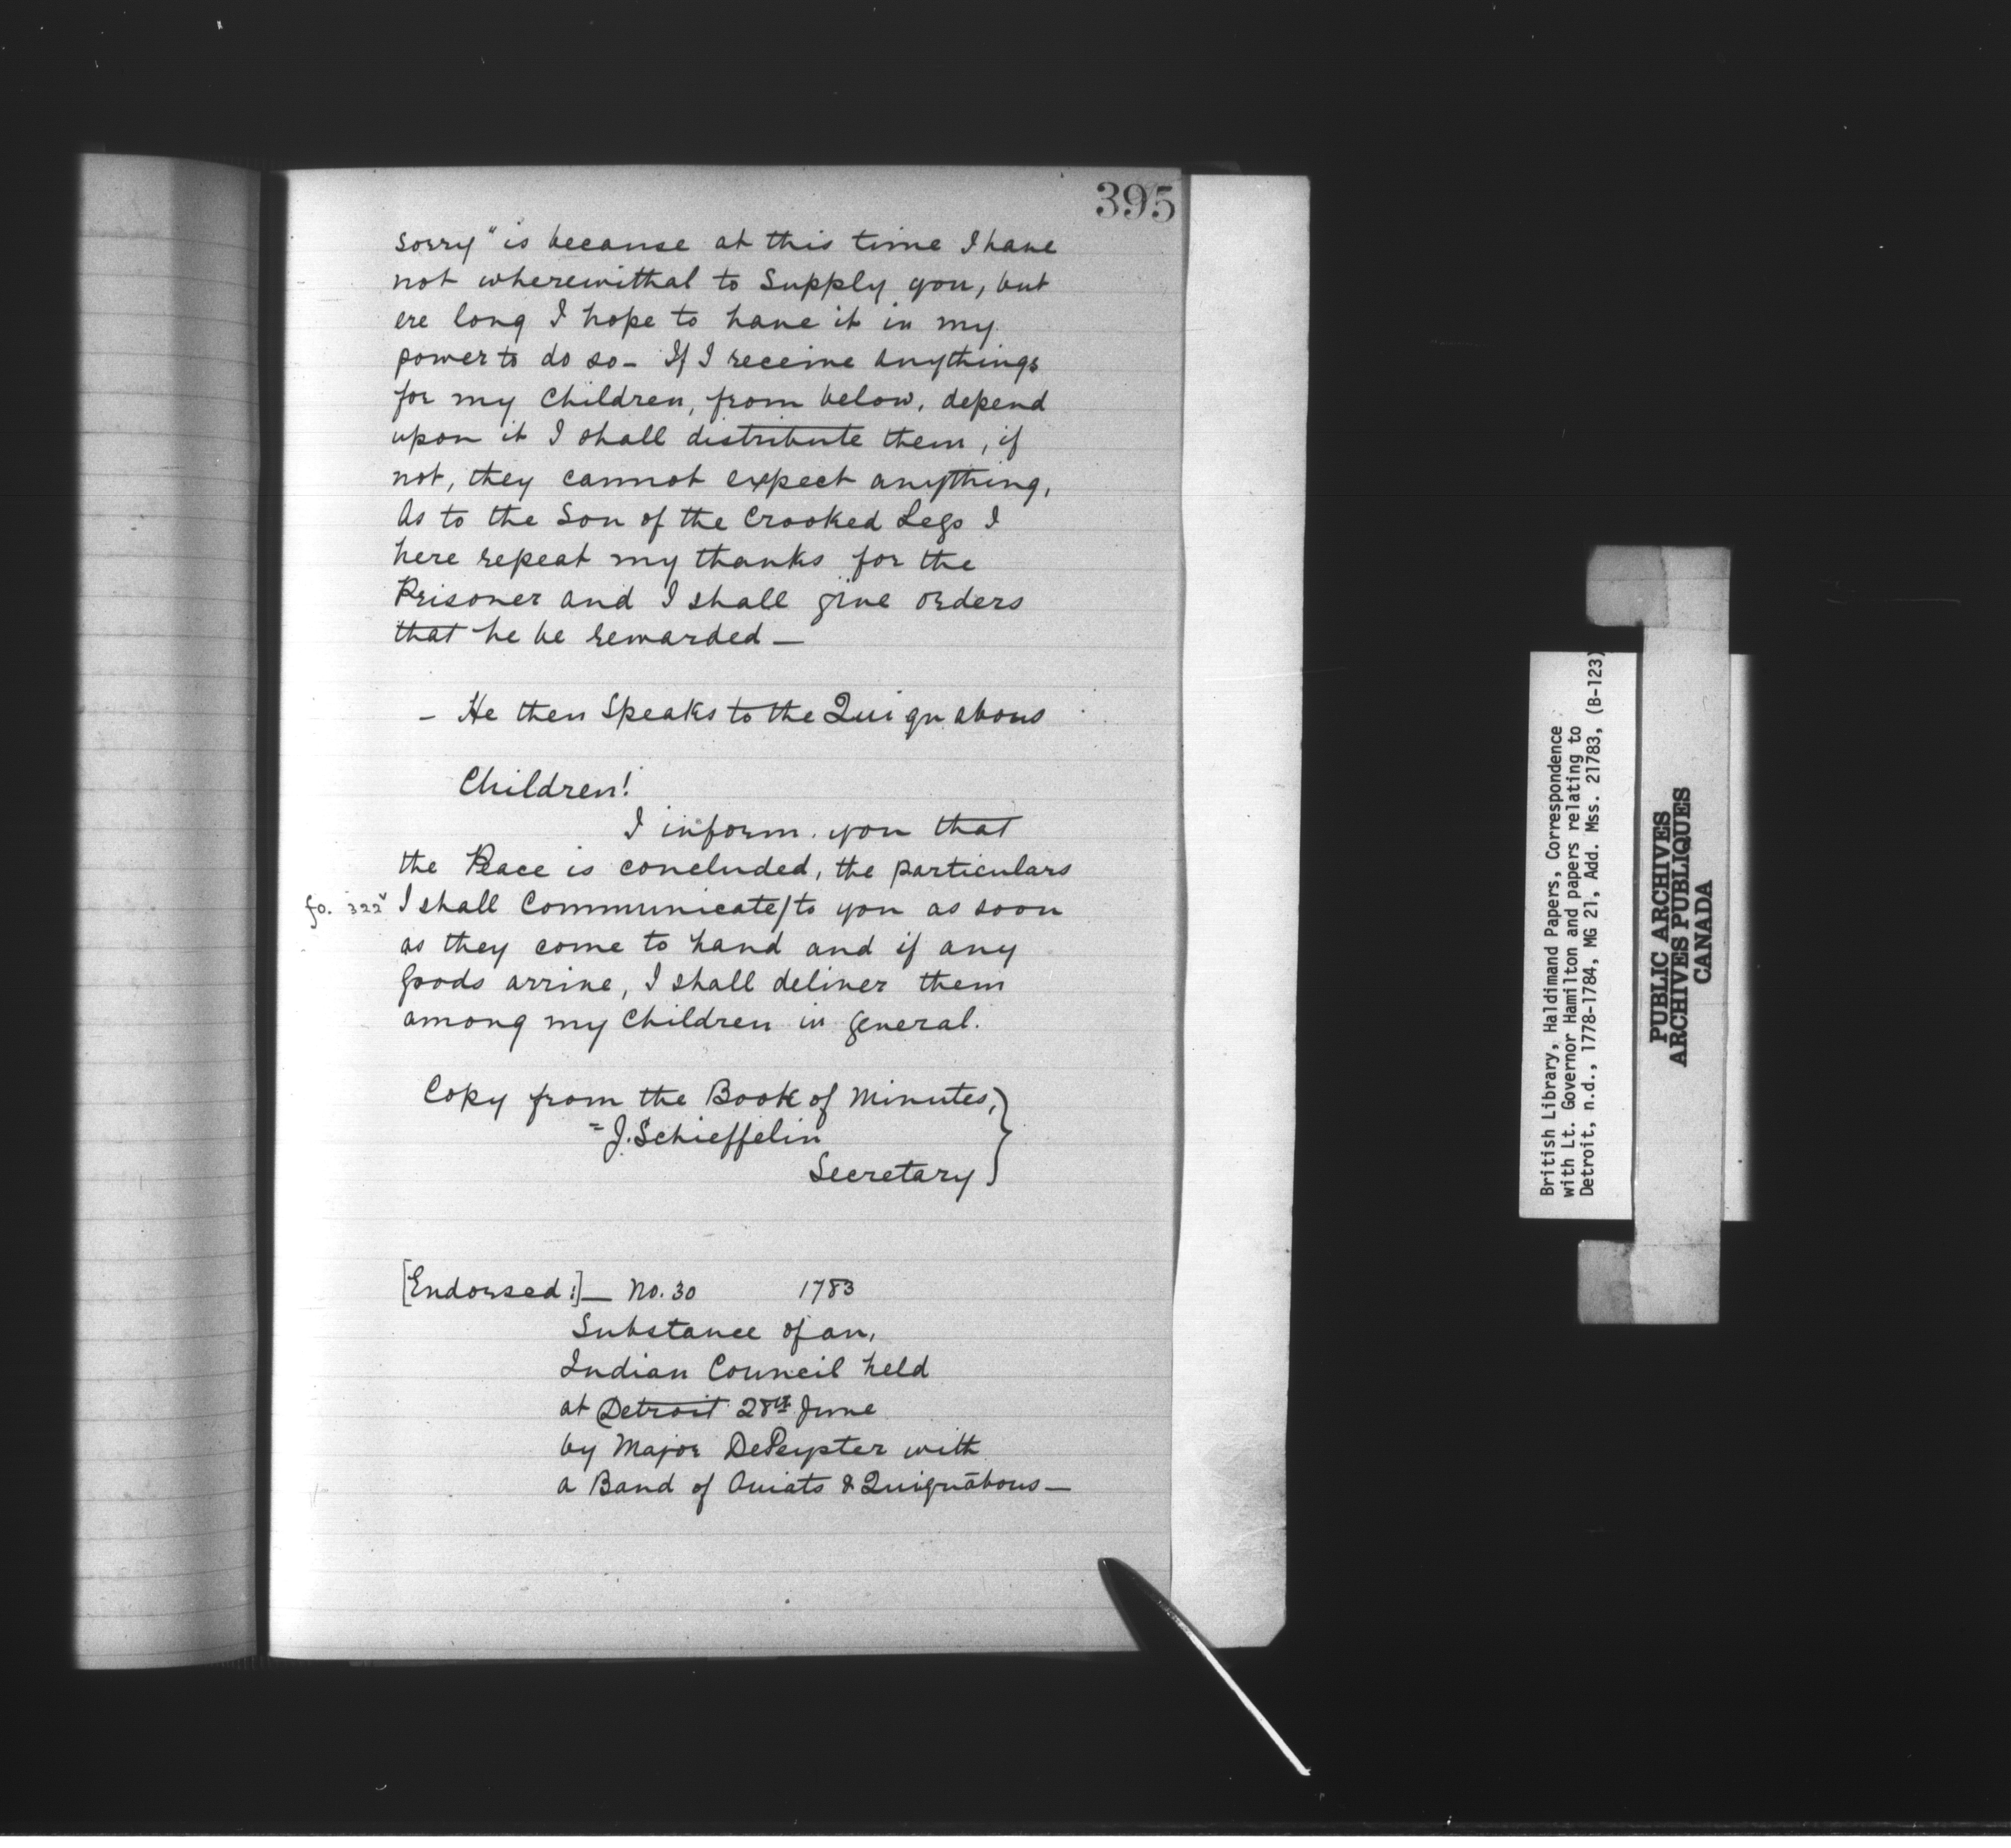 395
sorry" is because at this time I have
not wherewithal to Supply you, but
ere long I hope to have it in my
power to do so— If I receive anythings
for my Children, from below, depend
upon it I shall distribute them, if
not, they cannot expect anything,
As to the Son of the Crooked Legs I
here repeat my thanks for the
Prisoner and I shall give orders
that he be rewarded—
— He then Speaks to the Quiquabous
Children!
I inform you that
the Peace is concluded, the particulars
fo. 322v I shall Communicate/to you as soon
as they come to hand and if any
Goods arrive, I shall deliver them
among my Children in general.
Copy from the Book of Minutes,}
=J. Schieffelin
Secretary
[Endorsed:]— No. 30 1783
Substance of an,
Indian Council held
at Detroit 28th June
by Major DePeyster with
a Band of Ouiats & Quiquābous—
British Library, Haldimand Papers, Correspondence
with Lt. Governor Hamilton and papers relating to
Detroit, n.d., 1778-1784, MG 21, Add. Mss. 21783, (B-123)
PUBLIC ARCHIVES
ARCHIVES PUBLIQUES
CANADA